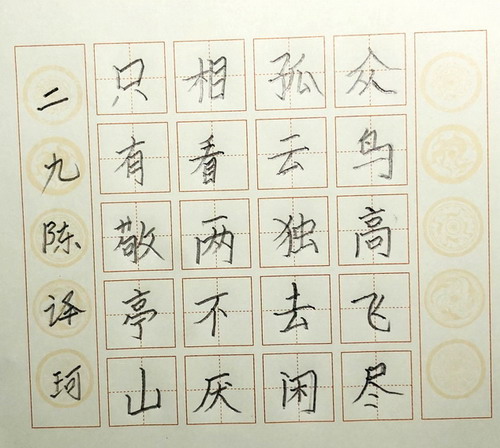 众鸟高飞尽
孤云独去闲
相看两不厌
只有敬亭山
二九陈译珂